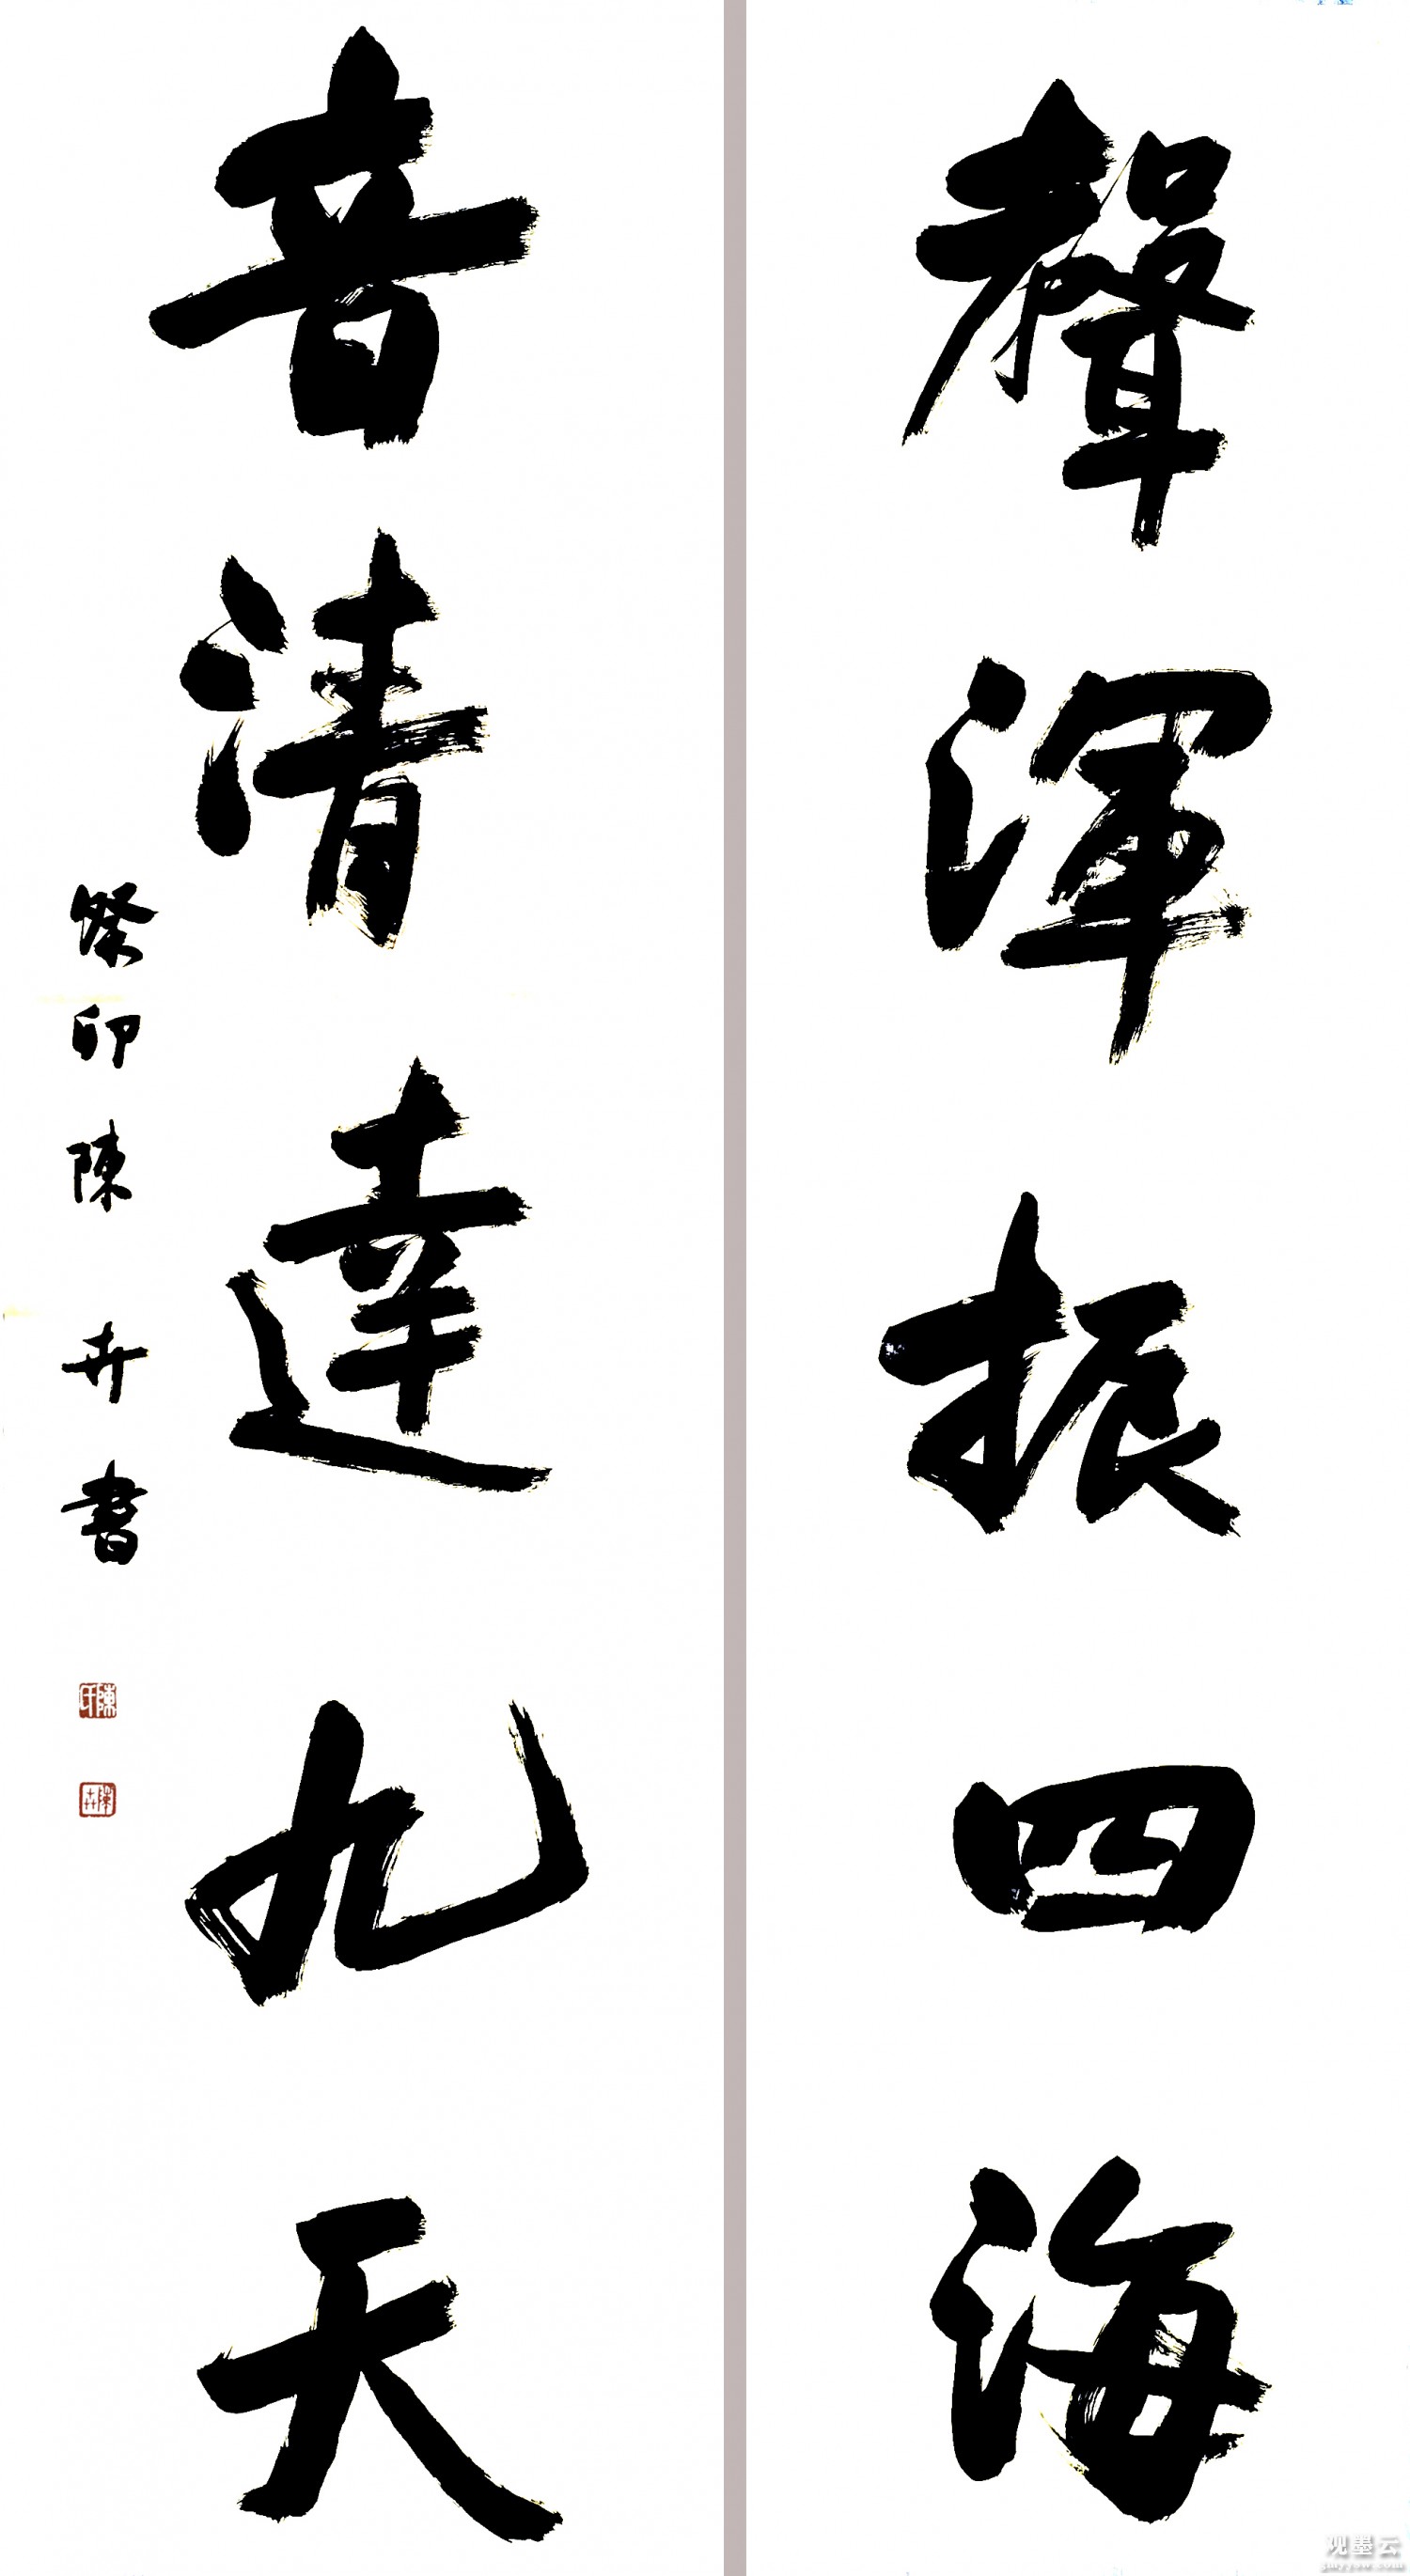 聲渾振四海
音清達九天
癸卯陳卉書
陳氏
观墨云